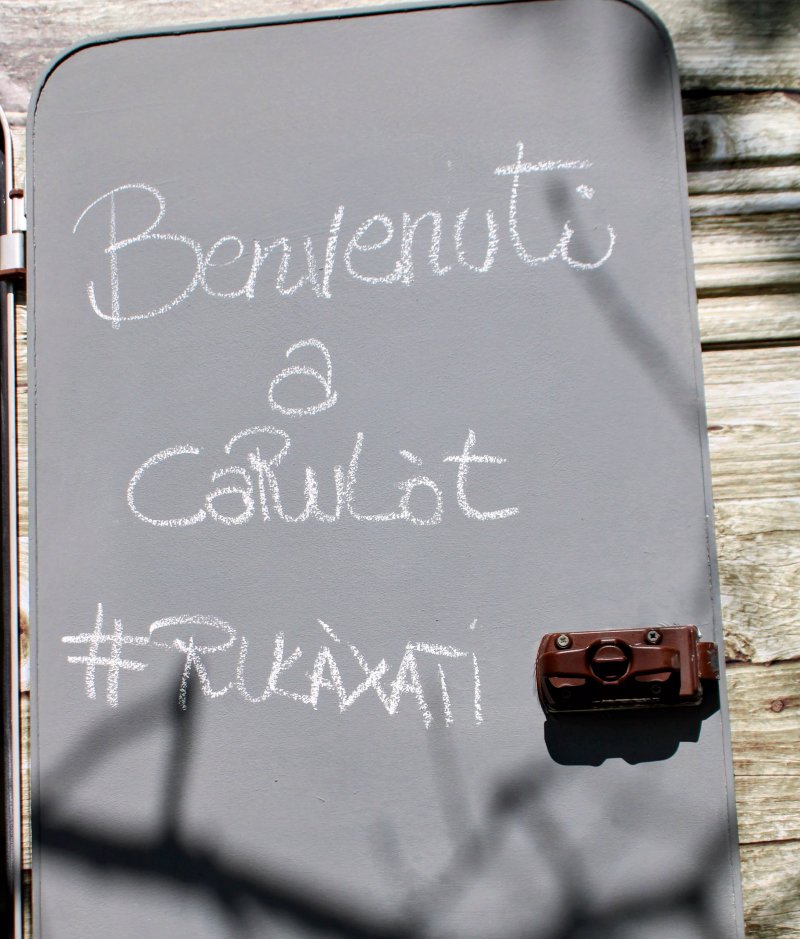 Benvenuti
a
CaRuLòt
#RULÀXATI